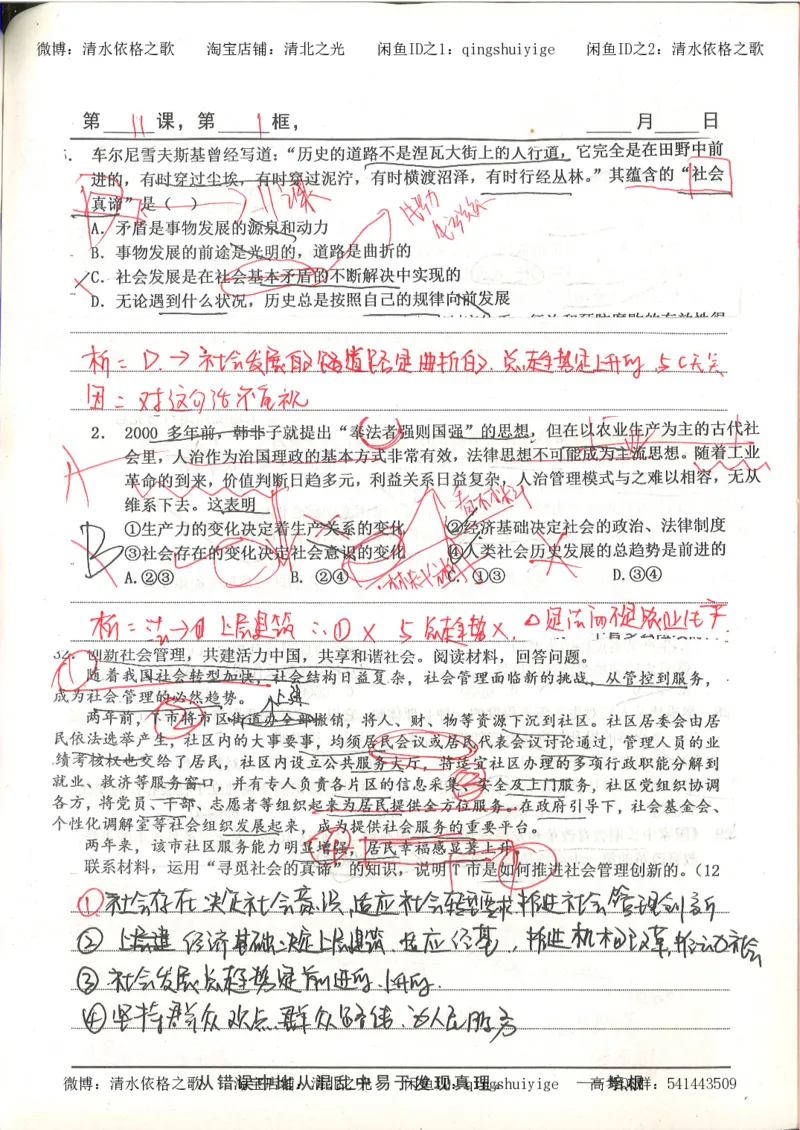 微博：清水依格之歌 淘宝店铺：清北之光 闲鱼ID之1：qingshuiyige 闲鱼ID之2：清水依格之歌
第 11 课，第 1 框， 月 日
车尔尼雪夫斯基曾经写道：“历史的道路不是涅瓦大街上的人行道，它完全是在田野中前
进的，有时穿过尘埃，有时穿过泥泞，有时横渡沼泽，有时行经丛林。”其蕴含的“社会
真谛”是（ ）
11课
A．矛盾是事物发展的源泉和动力
B．事物发展的前途是光明的，道路是曲折的
C．社会发展是在社会基本矛盾的不断解决中实现的
D．无论遇到什么状况，历史总是按照自己的规律向前发展
析：D.→社会发展的道路是曲折的.总趋势是上升的,与C无关
因：对这句话不重视
2． 2000 多年前，韩非子就提出“奉法者强则国强”的思想，但在以农业生产为主的古代社
会里，人治作为治国理政的基本方式非常有效，法律思想不可能成为主流思想。随着工业
革命的到来，价值判断日趋多元，利益关系日益复杂，人治管理模式与之难以相容，无从
维系下去。这表明
①生产力的变化决定着生产关系的变化 ②经济基础决定社会的政治、法律制度
③社会存在的变化决定社会意识的变化 ④人类社会历史发展的总趋势是前进的
A.②③ B. ②④ C. ①③ D.③④
A
B
析：法→上层建筑 ∴①× 与总趋势×.
32．创新社会管理，共建活力中国，共享和谐社会。阅读材料，回答问题。
随着我国社会转型加快，社会结构日益复杂，社会管理面临新的挑战，从管控到服务，
成为社会管理的必然趋势。
两年前，T市将市区街道办全部撤销，将人、财、物等资源下沉到社区。社区居委会由居
民依法选举产生，社区内的大事要事，均须居民会议或居民代表会议讨论通过，管理人员的业
绩考核权也交给了居民，社区内设立公共服务大厅，将适宜社区办理的多项行政职能分解到
就业、救济等服务窗口，并有专人负责各片区的信息采集、安全及上门服务，社区党组织协调
各方，将党员、干部、志愿者等组织起来为居民提供全方位服务。在政府引导下，社会基金会、
个性化调解室等社会组织发展起来，成为提供社会服务的重要平台。
两年来，该市社区服务能力明显增强，居民幸福感显著上升
联系材料，运用“寻觅社会的真谛”的知识，说明T市是如何推进社会管理创新的。（12
①社会存在决定社会意识,适应社会转型要求推进社会管理创新
②上层建 经济基础决定上层建筑.适应经基，推进机构改革,推动社会
③社会发展总趋势是前进的.上升的.
④坚持群众观点.群众路线.为人民服务
微博：清水依格之歌 闲鱼ID之1：qingshuiyige 541443509
从错误中比从混乱中易于发现真理。 ——培根